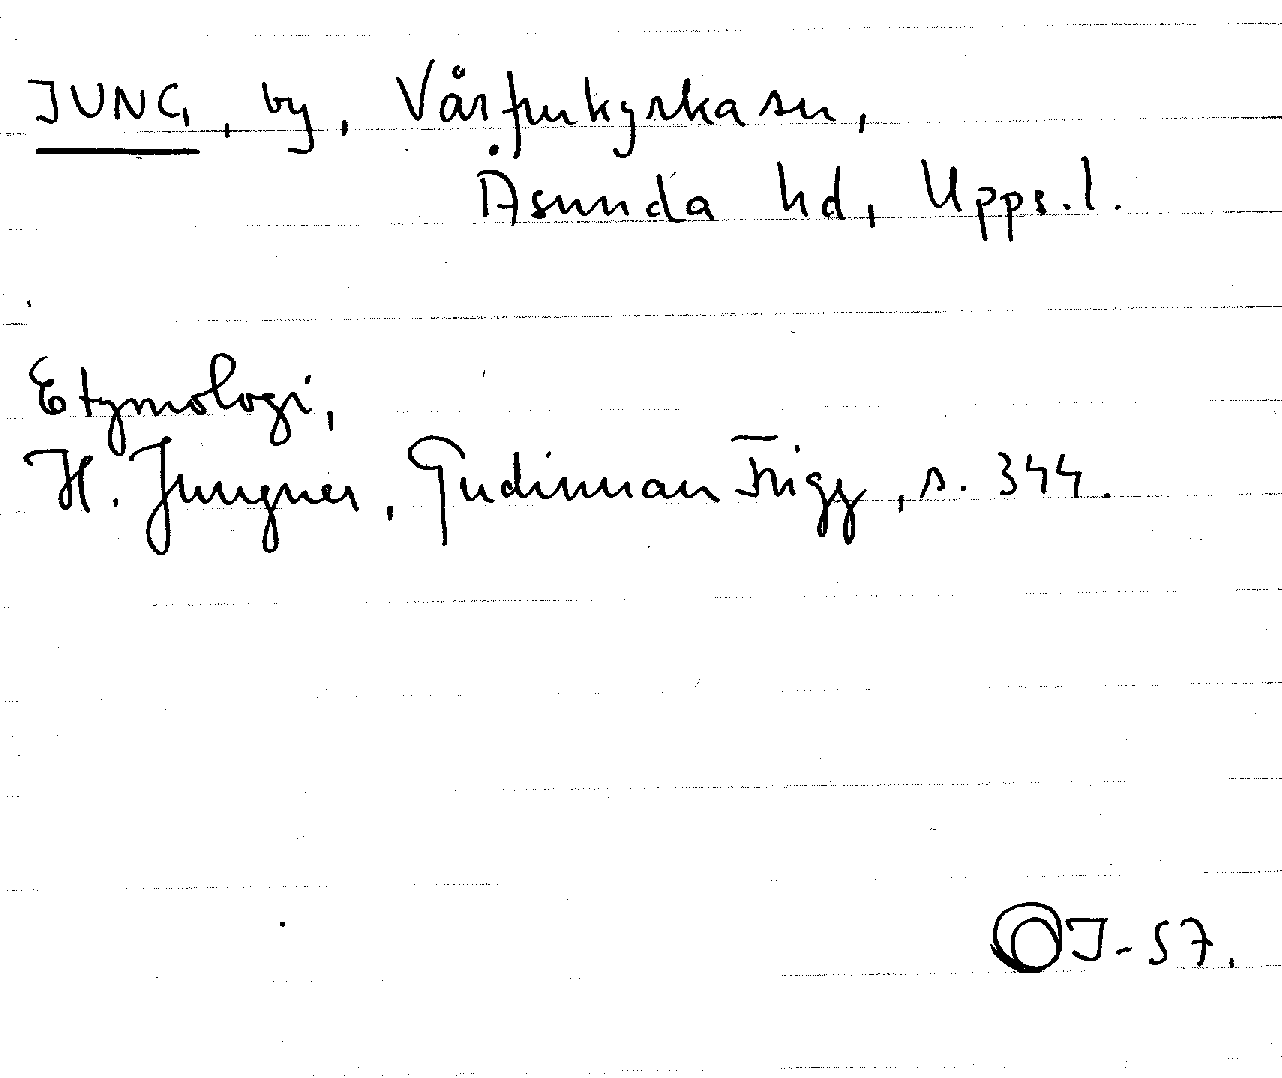 JUNG, by, Vårfrukyrka sn,
Åsunda hd, Upps.l.
Etymologi,
H. Jungner, Gudinnan Frigg, s. 344.
OJ-57.